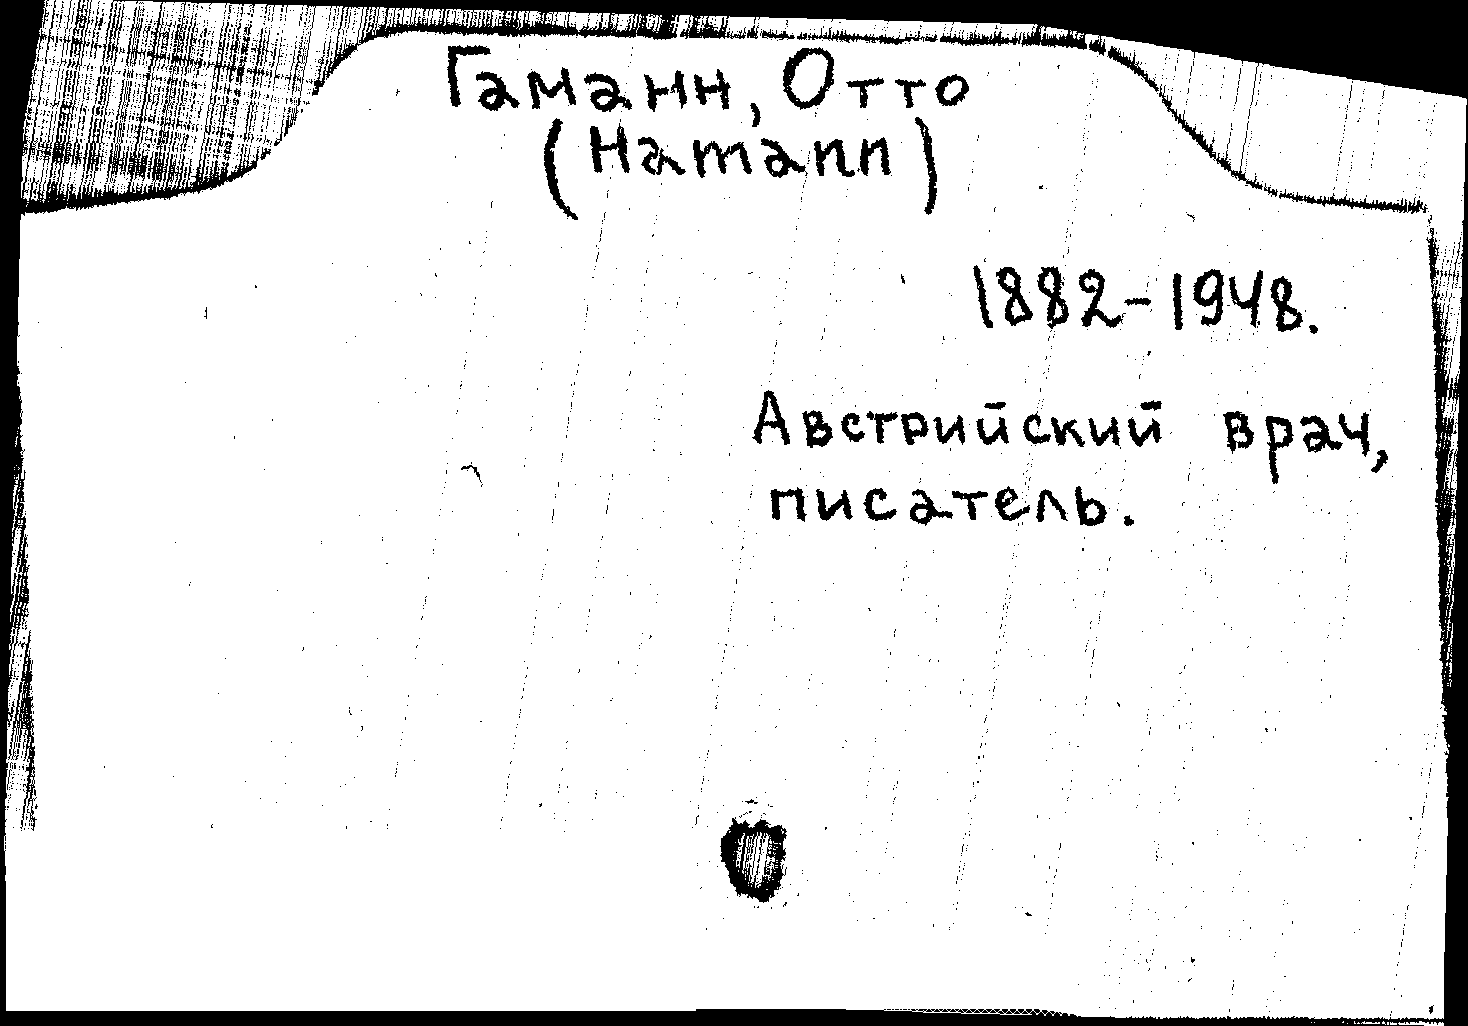 Гаманн, Отто
(Hamann)
1882-1948.
Австрийский врач,
писатель.